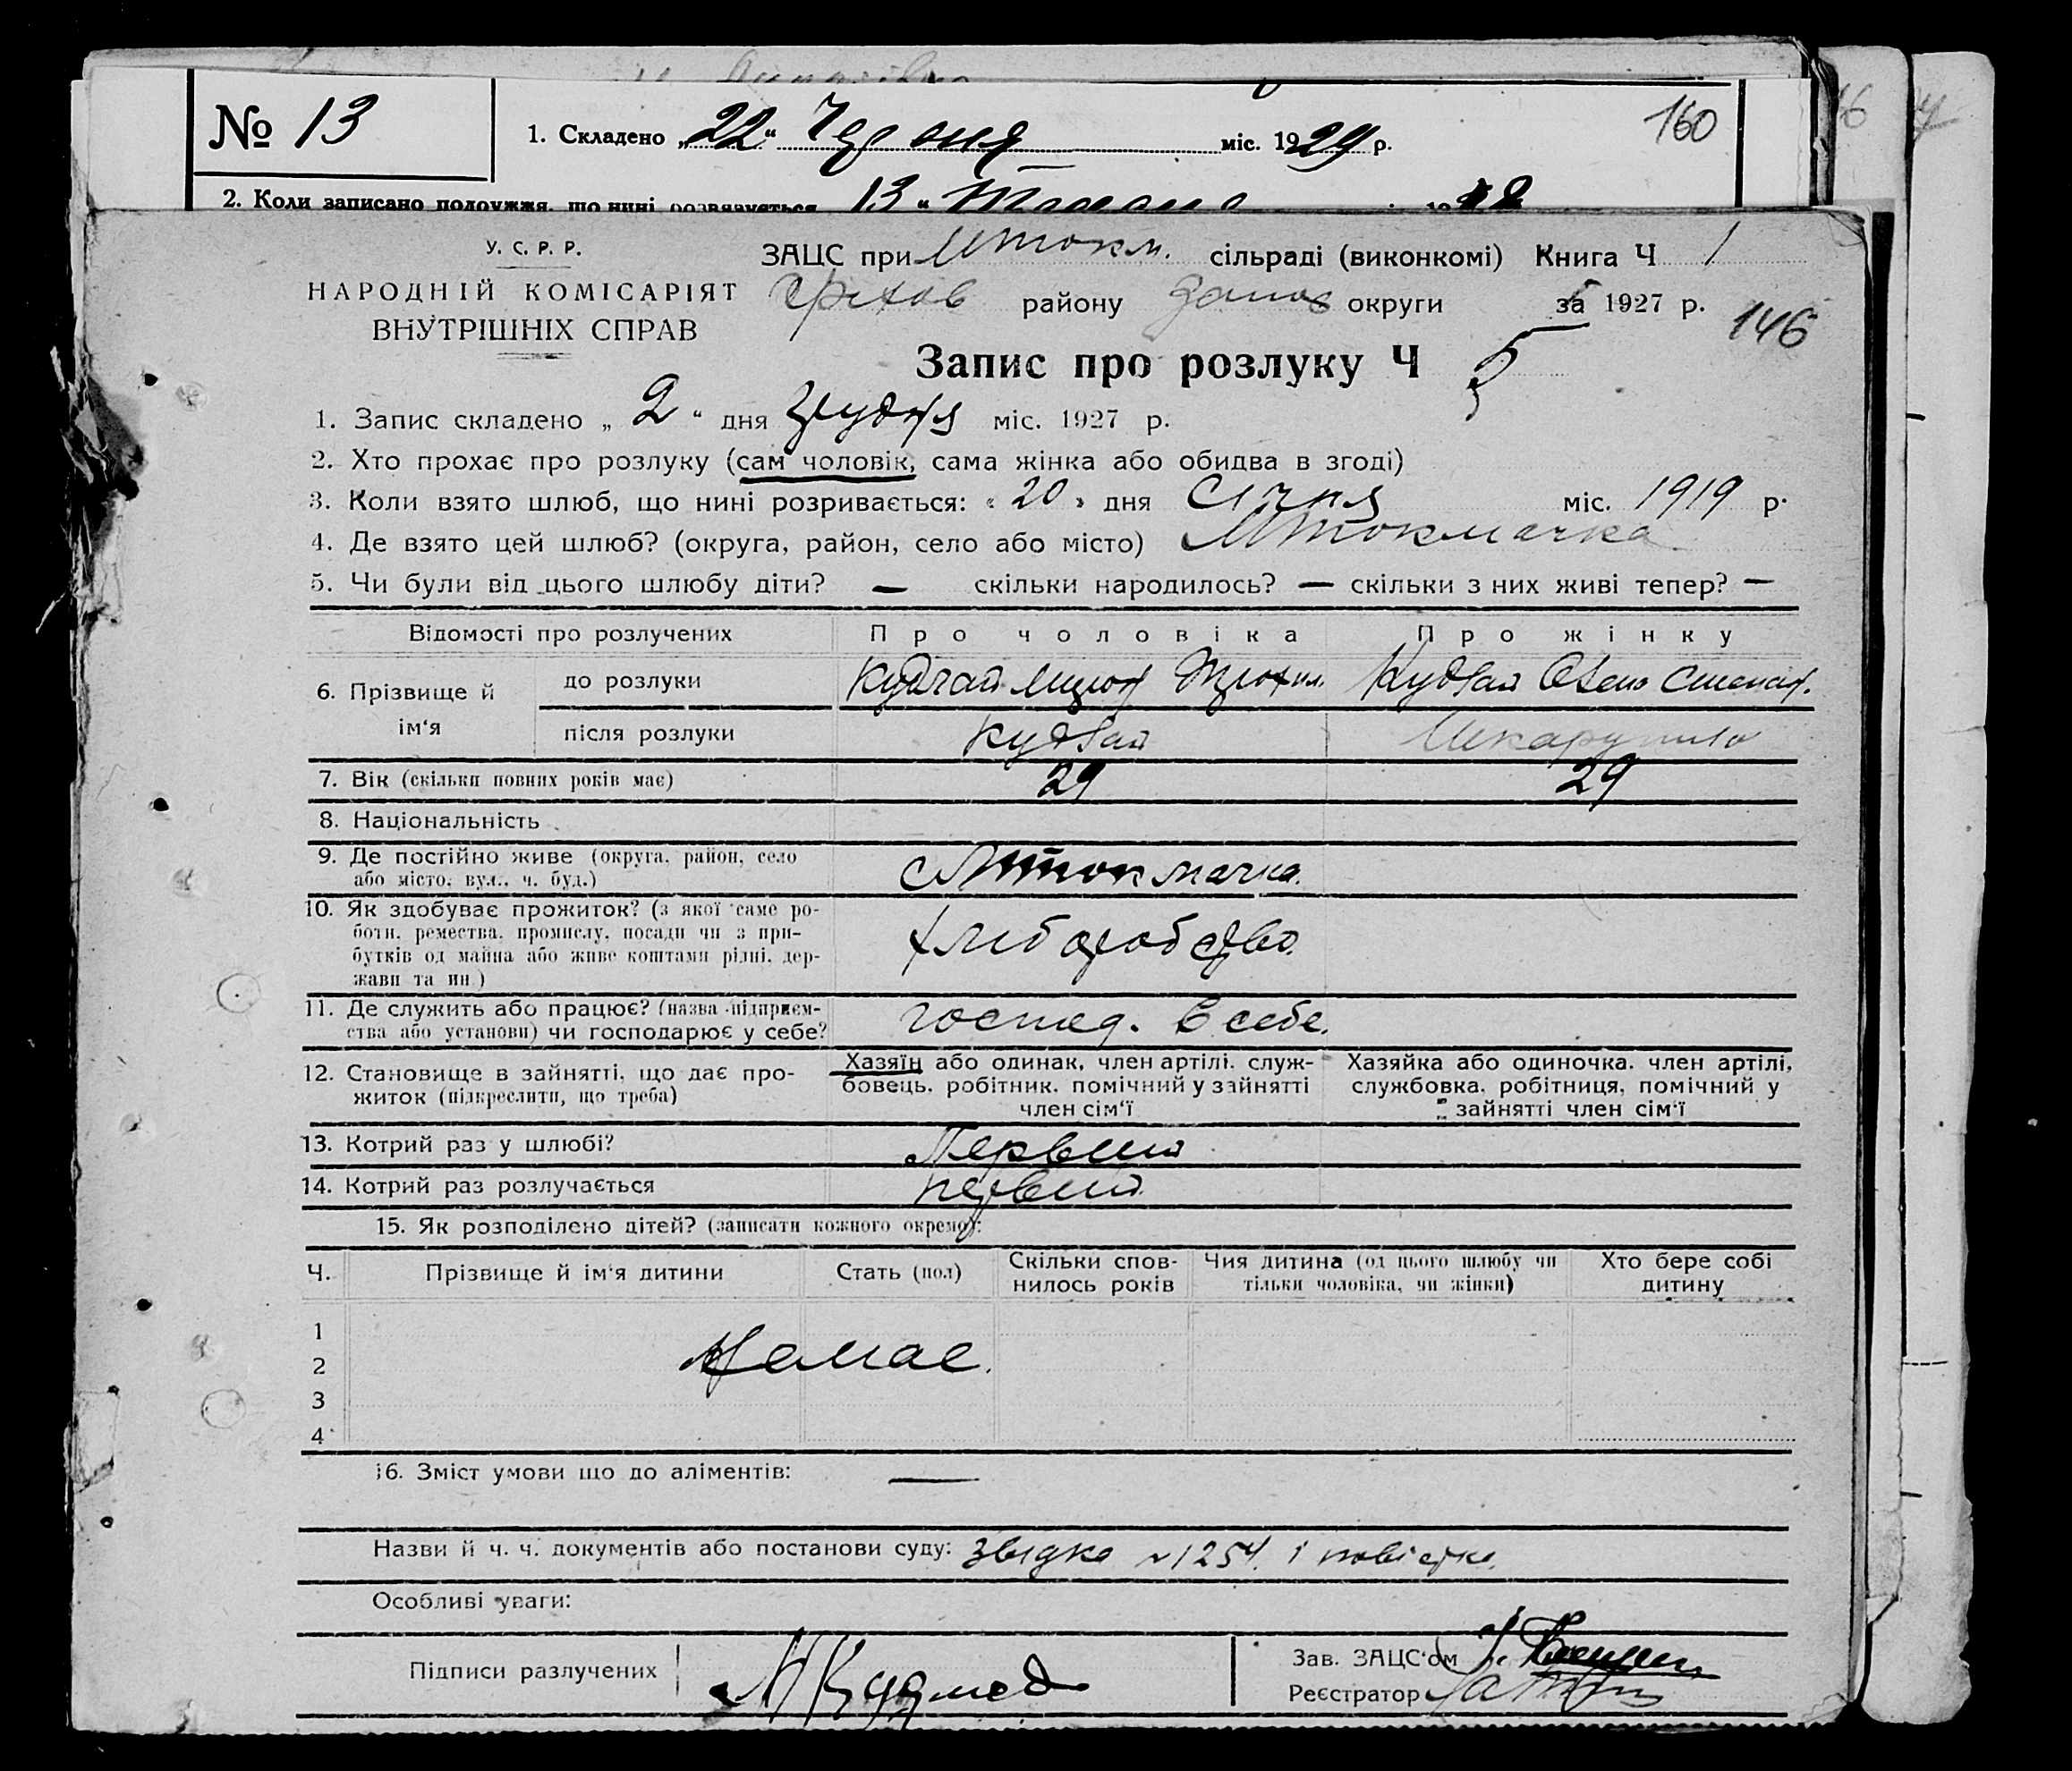 № 13
1. Складено „22“ Червня міс. 1929 р.
160
2. Коли записано подружжя, що нині розвязується 13 “
У. С. Р. Р.
НАРОДНІЙ КОМІСАРІЯТ
ВНУТРІШНІХ СПРАВ
ЗАЦС при Мток м. сільраді (виконкомі) Книга Ч 1
Оріхов району Запор округи за 1927 р.
146
Запис про розлуку Ч 5
1. Запис складено „ 2 “ дня грудня міс. 1927 р.
2. Хто прохає про розлуку (сам чоловік, сама жінка або обидва в згоді)
3. Коли взято шлюб, що нині розривається: « 20 » дня Січня міс. 1919 р.
4. Де взято цей шлюб? (округа, район, село або місто) Мтокмачка
5. Чи були від цього шлюбу діти? — скільки народилось? — скільки з них живі тепер? —
Відомості про розлучених Про чоловіка Про жінку
6. Прізвище й ім‘я
до розлуки
після розлуки
7. Вік (скільки повних років має) 29 29
8. Національність
9. Де постійно живе (округа, район, село
або місто, вул., ч. буд.)
с Мток мачка.
10. Як здобуває прожиток? (з якої саме ро-
боти, ремества, промислу, посади чи з при-
бутків од майна або живе коштами рідні, дер-
жави та ин.)
хлиборобство.
11. Де служить або працює? (назва підприєм-
ства або установи) чи господарює у себе?
господ. в себе.
12. Становище в зайнятті, що дає про-
житок (підкреслити, що треба)
Хазяїн або одинак, член артілі, служ-
бовець, робітник, помічний у зайнятті
член сім‘ї
Хазяйка або одиночка, член артілі,
службовка, робітниця, помічний у
зайнятті член сім‘ї
13. Котрий раз у шлюбі? Первий
14. Котрий раз розлучається первий
15. Як розподілено дітей? (записати кожного окремо):
Ч. Прізвище й ім‘я дитини Стать (пол) Скільки спов-
нилось років Чия дитина (од цього шлюбу чи
тільки чоловіка, чи жінки) Хто бере собі
дитину
1
2 Немає.
3
4
16. Зміст умови що до аліментів: —
Назви й ч. ч. документів або постанови суду: Звідка №1254 і повістка
Особливі уваги:
Підписи разлучених
Зав. ЗАЦС‘ом
Реєстратор